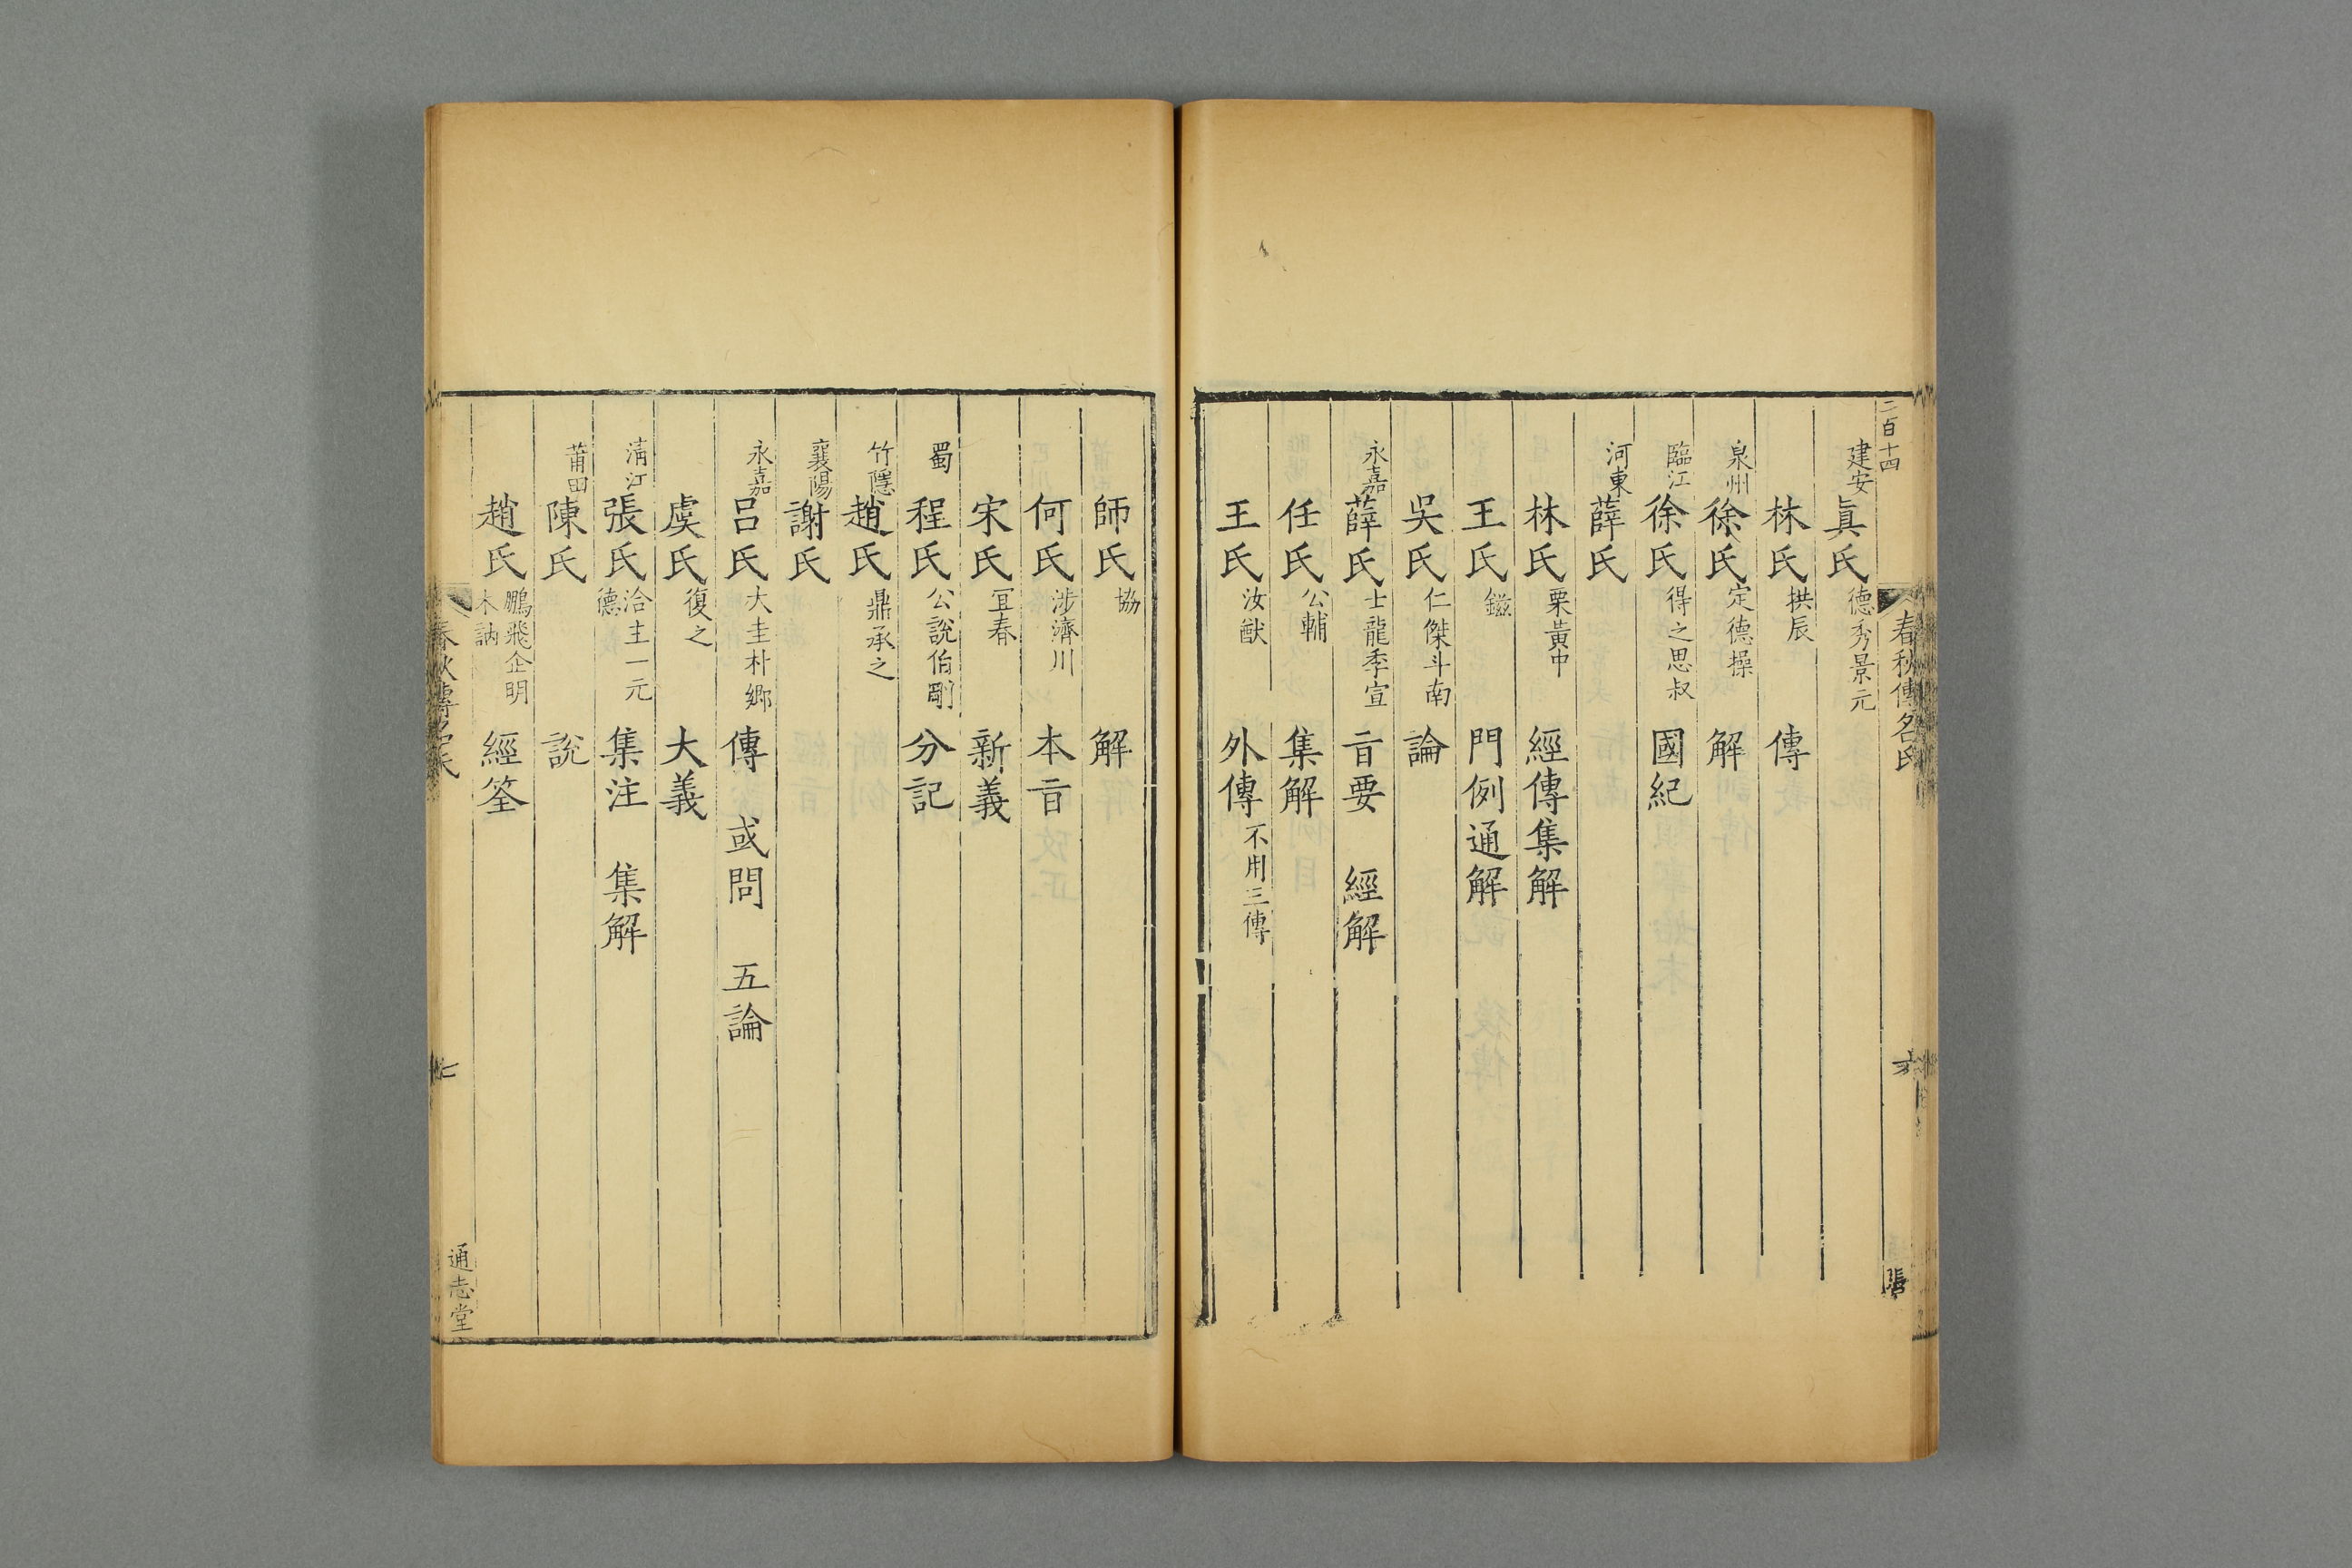 二百十四
春秋傳名氏
六
建安眞氏德秀景元
林氏拱辰 傳
泉州徐氏定德操 解
臨江徐氏得之思叔 國紀
河東薛氏
林氏栗黃中 經傳集解
王氏鎡 門例通解
吳氏仁傑斗南 論
永嘉薛氏士龍季宣 㫖要 經解
任氏公輔 集解
王氏汝猷 外傳不用三傳
師氏協 解
何氏涉濟川 本㫖
宋氏冝春 新義
蜀程氏公說伯剛 分記
竹隱趙氏鼎承之
襄陽謝氏
永嘉呂氏大圭朴鄉 傳 或問 五論
虞氏復之 大義
清江張氏洽主一元德 集注 集解
莆田陳氏 說
趙氏鵬飛企明木訥 經筌
春秋傳名氏
七
通志堂